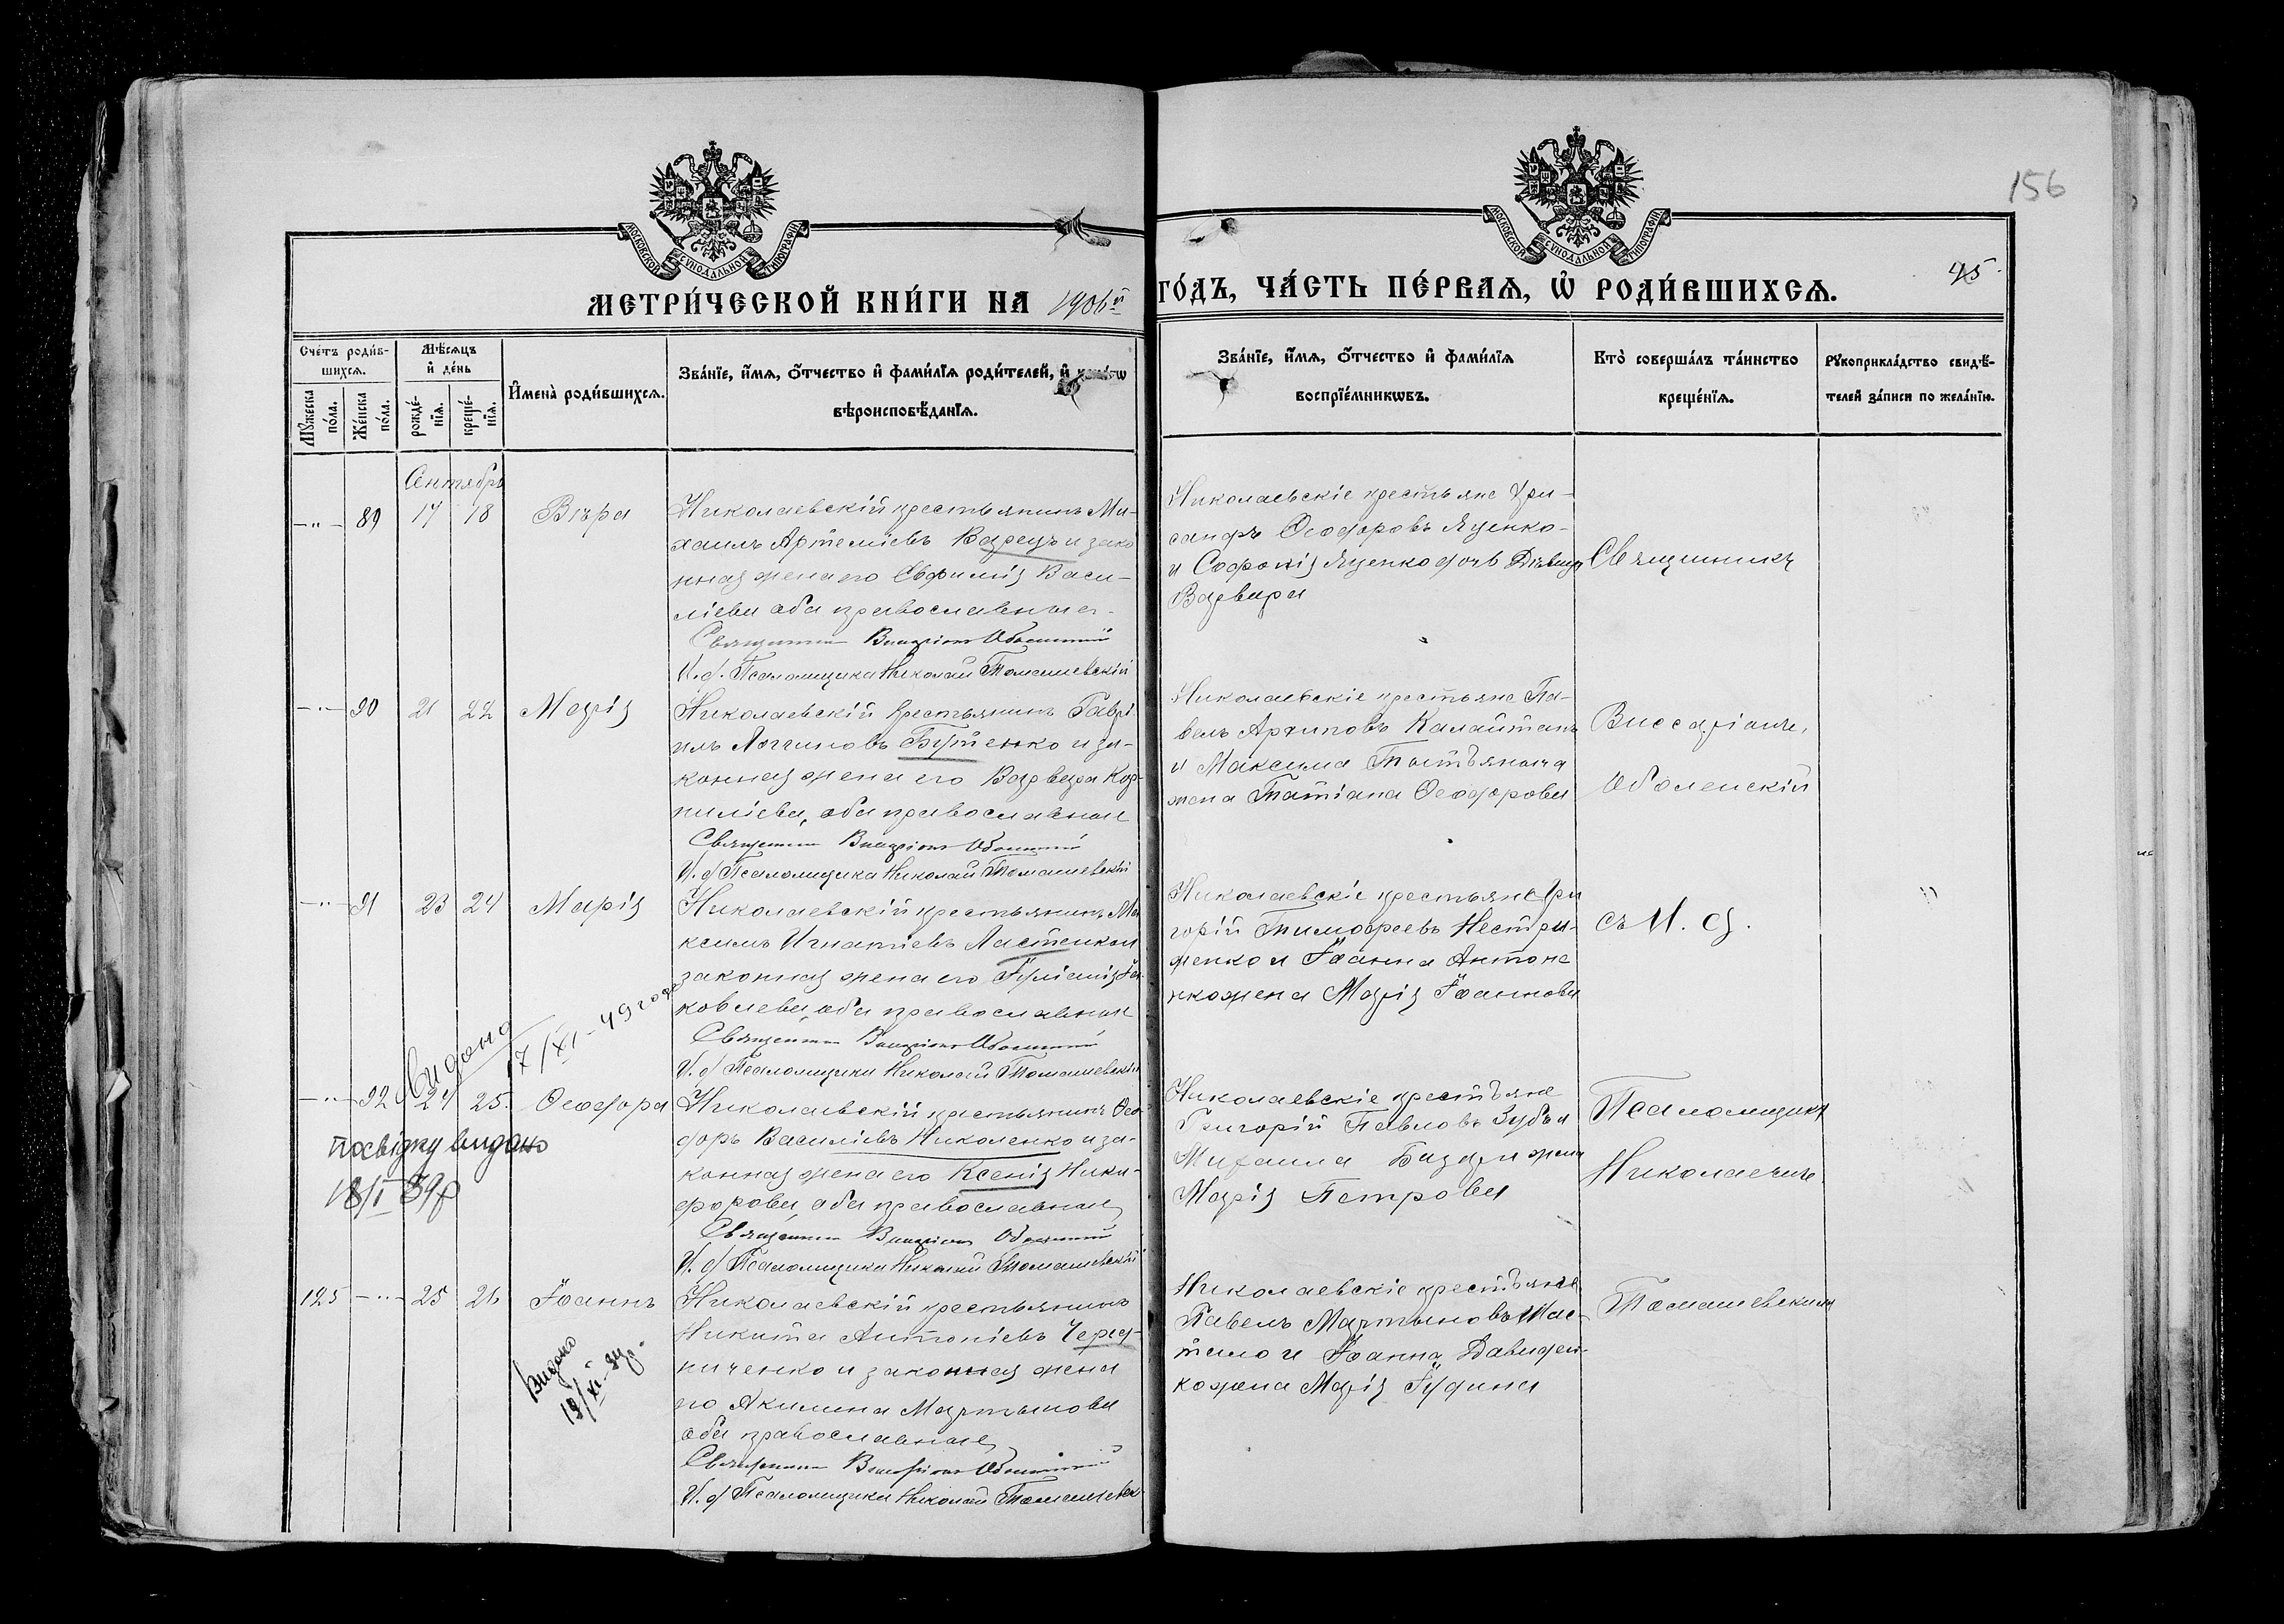 156
МОСКОВСКОЙ СУНОДАЛЬНОЙ ТИПОГРАФІИ
МОСКОВСКОЙ СУНОДАЛЬНОЙ ТИПОГРАФІИ
МЕТРИ́ЧЕСКОЙ КНИ́ГИ НА 1906й ГО́ДЪ, ЧА́СТЬ ПЕ́РВАЯ, Ѡ РОДИ́ВШИХСЯ. 45
Сче́тъ роди́в-
шихся.
Му́жеска по́ла.
Же́нска по́ла.
Мѣ́сяцъ и де́нь
рожде́-
нія.
креще́-
нія.
Имена̀ роди́вшихся.
Зва́ніе, и́мя, о́тчество и фами́лія роди́телей, и
вѣроисповѣ́данія.
Зва́ніе, и́мя, о́тчество и фами́лія
воспріе́мниковъ.
Кто̀ соверша́лъ та́инство
креще́нія.
Рукоприкла́дство свидѣ́-
телей за́писи по жела́нію.
Сентябрь
-"- 89 17 18 Вѣра
Николаевскій крестьянинъ Ми-
хаилъ Артеміевъ Варецъ и зако
нная жена его Евфимія Васи-
ліева оба православные
Священникъ Виссаріонъ Оболенскій
И. д. Псаломщика Николай Томашевскій
Николаевскіе крестьяне Хри-
санфъ Ѳеодоровъ Яценко
и Софонія Яценко дочь Дѣвица
Варвара
Священникъ
-"- 90 21 22 Марія
Николаевскій крестьянинъ Гаврі
илъ Логгиновъ Бутенко и за-
конная жена его Варвара Кор-
ниліева, оба православные
Священникъ Виссаріонъ Оболенскій
И. д Псаломщика Николай Томашевскій
Николаевскіе крестьяне Па-
велъ Архиповъ Калайтанъ
и Максима
жена Татіана Ѳеодорова
Виссаріонъ
Оболенскій
-"- 91 23 24 Марія
Николаевскій крестьянинъ Ма
ксимъ Игнатіевъ Ластенко и
законная жена его Іуліанія Іа-
ковлева, оба православные
Священникъ Виссаріонъ Оболенскій
И. д Псаломщика Николай Томашевскій
Николаевскіе крестьяне Гри
горій Тимофеевъ Нестри-
женко и Іоанна Антоне
нко жена Марія Іоаннова
съ И. д.
Видано
17/XI-49 года
-"- 92 24 25. Ѳеодора
посвідку видано
18/I 39р
Николаевскій крестьянинъ Ѳео
доръ Василіевъ Николенко и за-
конная жена его Ксенія Ники-
форова, оба православные
Священникъ Виссаріонъ Оболенскій
И. д Псаломщика Николай Томашевскій
Николаевскіе крестьяне
Григорій Павловъ Зубъ и
Михаила жена
Марія Петрова
Псаломщика
Николаемъ
125 -"- 25 26 Іоаннъ
Видано
19/XI-
Николаевскій крестьянинъ
Никита Антоніевъ Черед-
ниченко и законная жена
его Акилина Мартынова
оба православные
Священникъ Виссаріонъ Оболенскій
И. д Псаломщика Николай Томашевск
Николаевскіе крестьяне
Павелъ Мартыновъ Мас-
тило и Іоанна Давиден-
ко жена Марія Іудина
Томашевскимъ